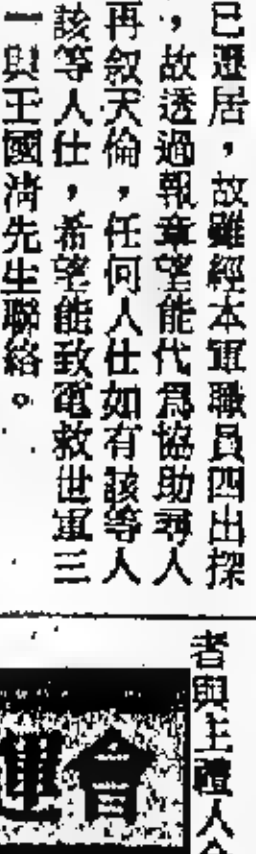 已遷居，故雖經本軍職員四出探
，故透過報章望能代爲協助尋人
再叙天倫，任何人仕如有該等人
該等人仕，希望能致電救世軍三
一與王國清先生聯絡。
者與主禮人
會運